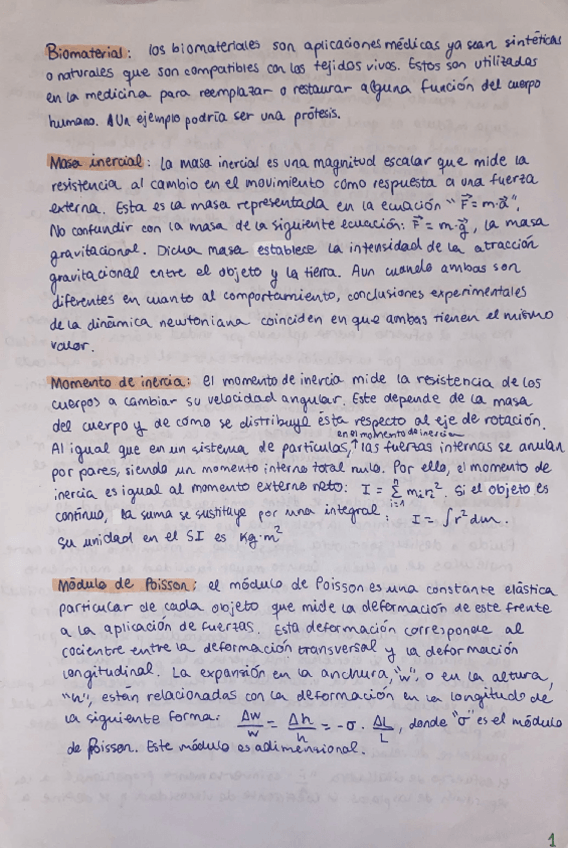 Biomaterial: los biomateriales son aplicaciones médicas ya sean sintéticas
o naturales que son compatibles con los tejidos vivos. Estos son utilizados
en la medicina para reemplazar o restaurar alguna función del cuerpo
humano. Un ejemplo podría ser una prótesis.
Masa inercial: la masa inercial es una magnitud escalar que mide la
resistencia al cambio en el movimiento como respuesta a una fuerza
externa. Esta es la masa representada en la ecuación "F⃗ = m·a⃗".
No confundir con la masa de la siguiente ecuación: F⃗ = m·g⃗, la masa
gravitacional. Dicha masa establece la intensidad de la atracción
gravitacional entre el objeto y la tierra. Aun cuando ambas son
diferentes en cuanto al comportamiento, conclusiones experimentales
de la dinámica newtoniana coinciden en que ambas tienen el mismo
valor.
Momento de inercia: el momento de inercia mide la resistencia de los
cuerpos a cambiar su velocidad angular. Este depende de la masa
del cuerpo y de cómo se distribuye ésta respecto al eje de rotación.
en el momento de inercia
Al igual que en un sistema de partículas,↑ las fuerzas internas se anulan
por pares, siendo un momento interno total nulo. Por ello, el momento de
inercia es igual al momento externo neto: I = Σⁿᵢ₌₁ mᵢrᵢ². Si el objeto es
continuo, la suma se sustituye por una integral: I = ∫r²dm.
Su unidad en el SI es Kg·m²
Módulo de Poisson: el módulo de Poisson es una constante elástica
particular de cada objeto que mide la deformación de este frente
a la aplicación de fuerzas. Esta deformación corresponde al
cociente entre la deformación transversal y la deformación
longitudinal. La expansión en la anchura, "w", o en la altura,
"h", están relacionadas con la deformación en la longitud de
la siguiente forma: Δw/w = Δh/h = -σ · ΔL/L, donde "σ" es el módulo
de Poisson. Este módulo es adimensional.
1